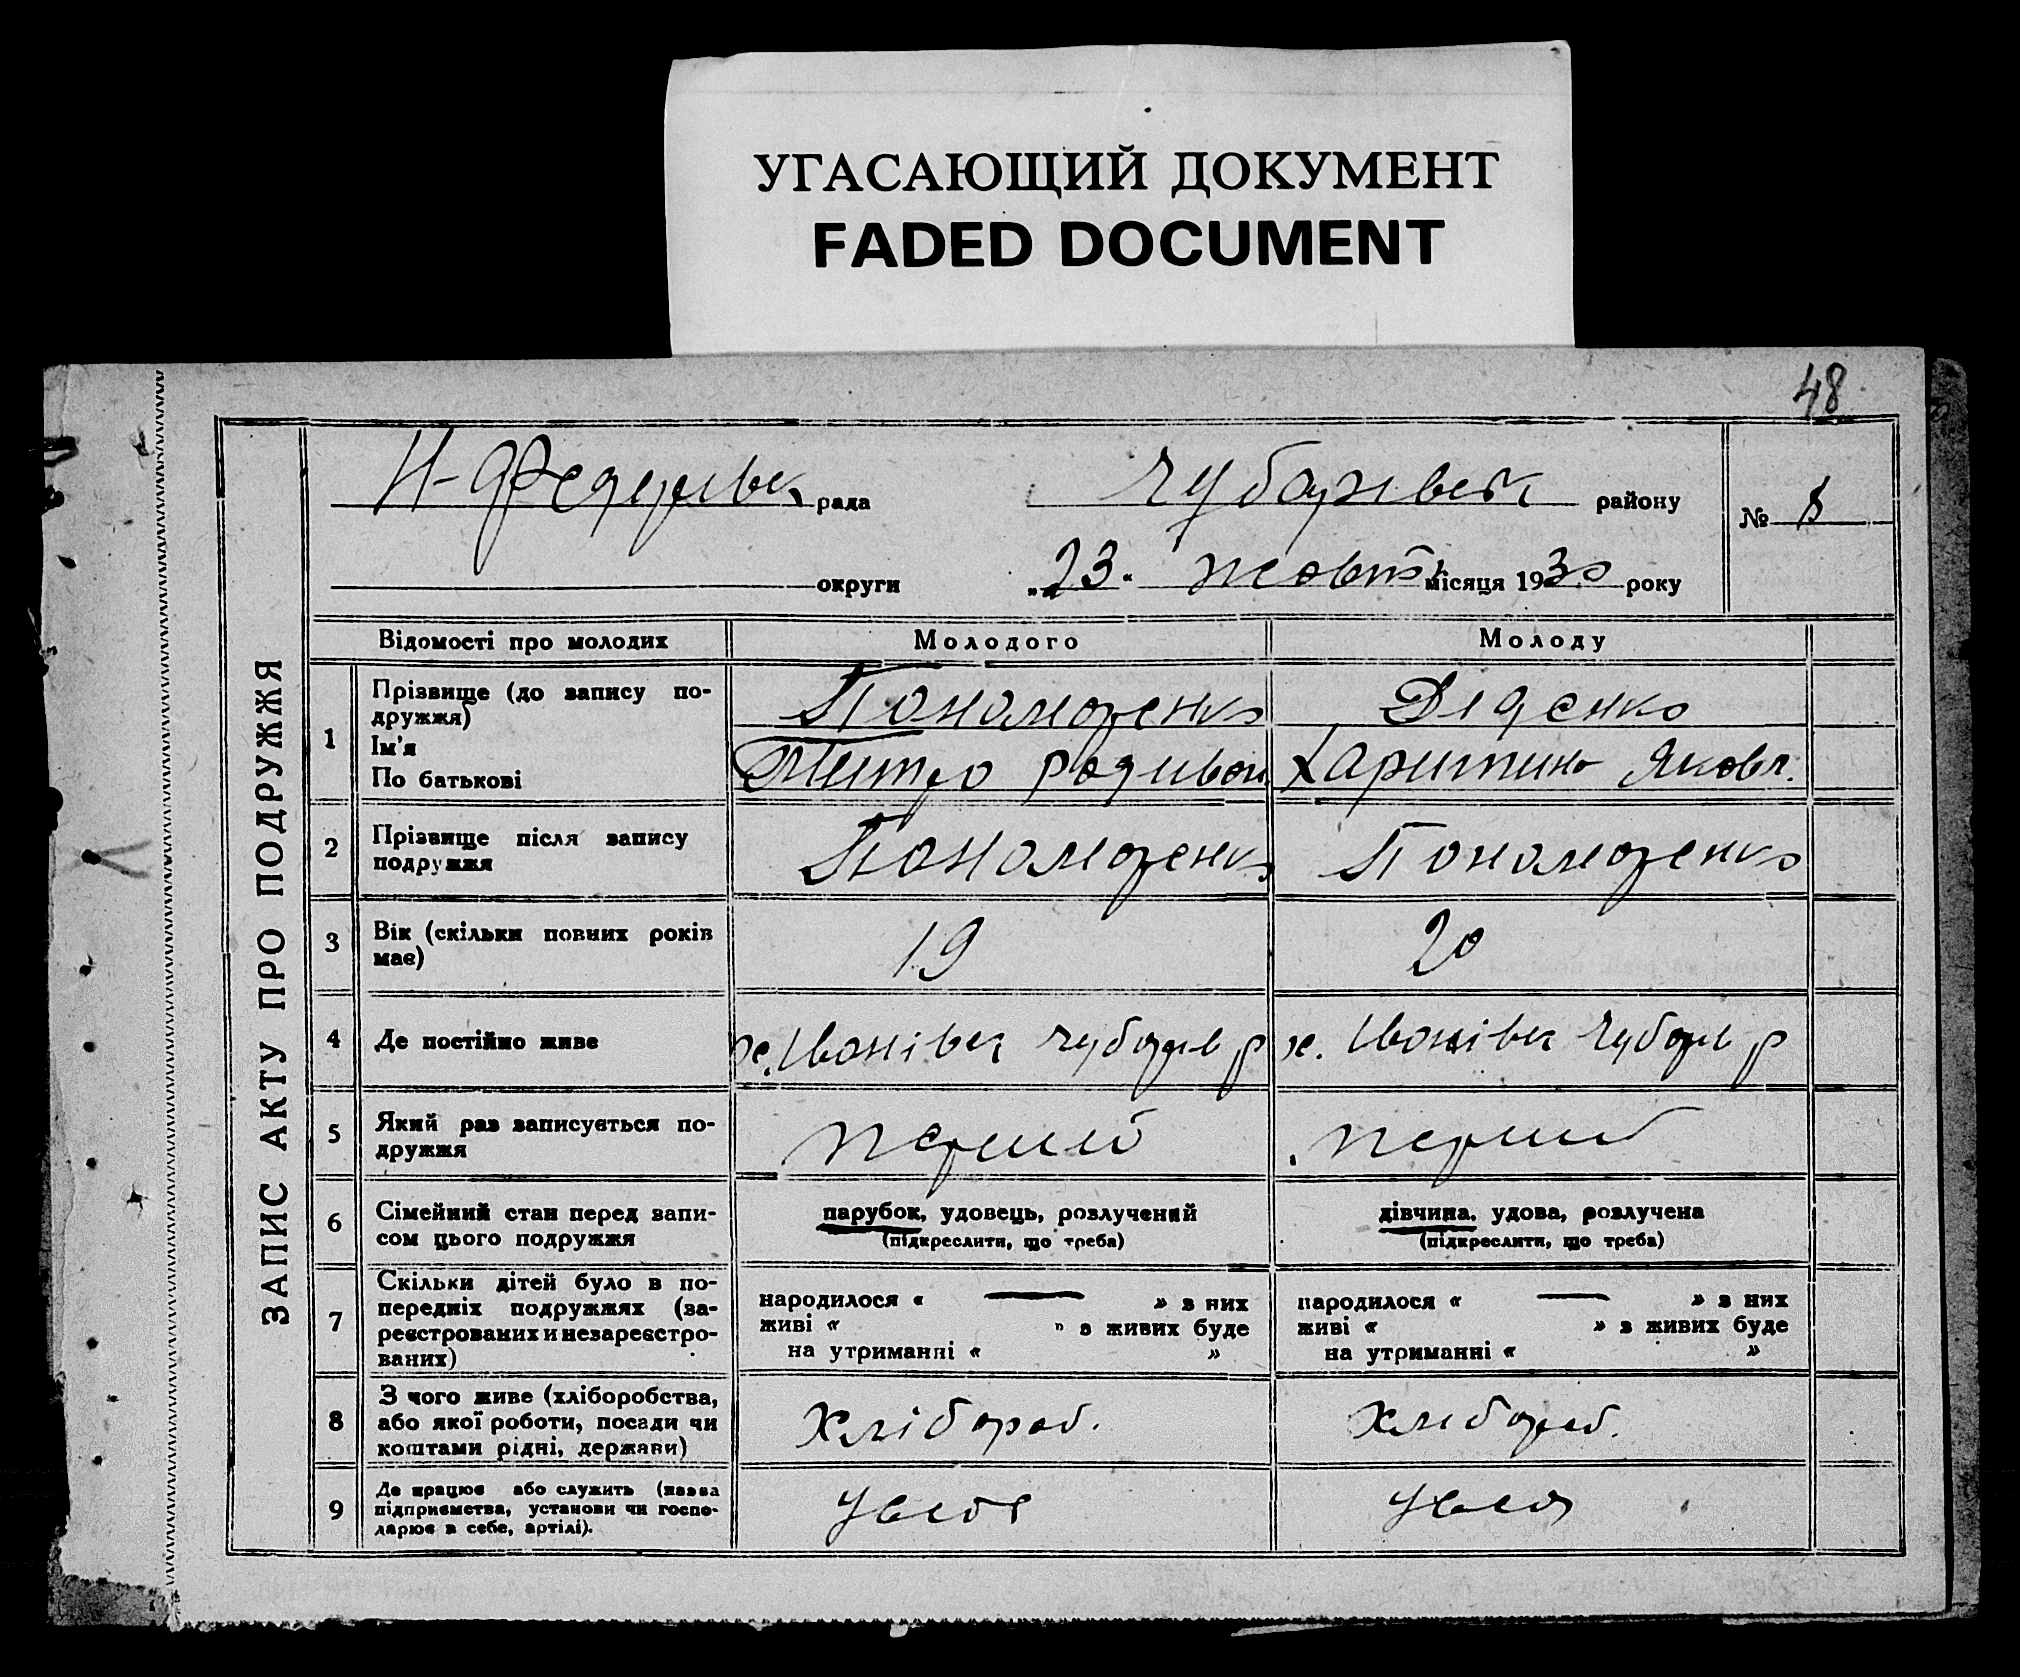 УГАСАЮЩИЙ ДОКУМЕНТ
FADED DOCUMENT
48
ЗАПИС АКТУ ПРО ПОДРУЖЖЯ
Н-Федорівск рада Чубарівск району № 8
округи „23“ жовтн місяця 1930 року
Відомості про молодих Молодого Молоду
1 Прізвище (до запису по-
дружжя) Пономаренко Дяденко
Ім'я
По батькові Дмитро Родивон. Харитина Яковл.
2 Прізвище після запису
подружжя Пономаренко Пономаренко
3 Вік (скільки повних років
має) 19 20
4 Де постійно живе х. Іванівка Чубарів р х. Іванівка Чубарів р
5 Який раз записується по-
дружжя перший перший
6 Сімейний стан перед запи-
сом цього подружжя парубок, удовець, розлучений дівчина, удова, розлучена
(підкреслити, що треба) (підкреслити, що треба)
7 Скільки дітей було в по-
передніх подружжях (за-
реєстрованих и незареєстро-
ваних)
народилося « — » з них народилося « — » з них
живі « » з живих буде живі « » з живих буде
на утриманні « » на утриманні « »
8 З чого живе (хліборобства,
або якої роботи, посади чи
коштами рідні, держави) Хлібороб. Хлібороб.
9 Де працює або служить (назва
підприємства, установи чи госпо-
дарює в себе, артілі). У себе У себе